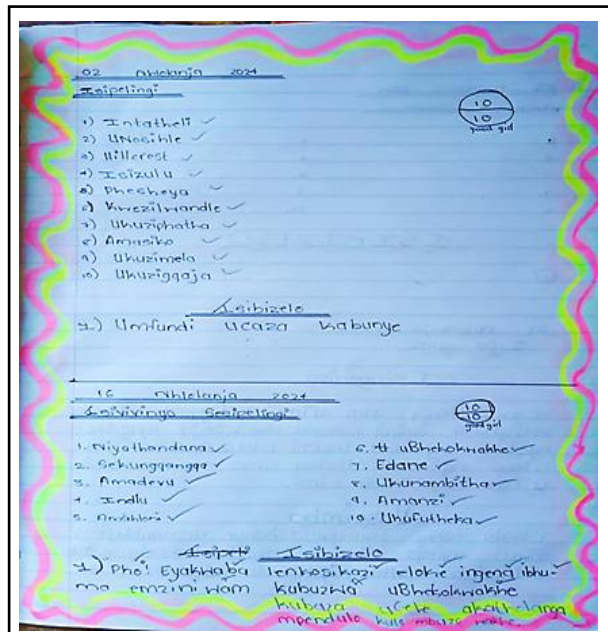 02 Nhlolanja 2024
Isipelingi
10
10
good girl
1) Intatheli
2) UNosihle
3) Hillcrest
4) Isizulu
5) Phesheya
6) Kwezilwandle
7) Ukuziphatha
8) Amasiko
9) Ukuzimela
10) Ukuziqqaja
Isibizelo
1) Umfundi ucaza kabunye
16 Nhlolanja 2024
Isivivinyo Sesipelingi
10
10
good girl
1. Niyathandana
2. Sekungqangqa
3. Amadevu
4. Indlu
5.
6. uBhekokwakhe
7. Edane
8. Ukunambitha
9. Amanzi
10. Ukufutheka
Isipeli Isibizelo
1) Pho! Eyakwaba lenkosikazi elokhe ingena ibhu-
ma emzini wam kubuzwa uBhekokwakhe
kubaza ucele akatholanga
mpendulo kule mbuzo